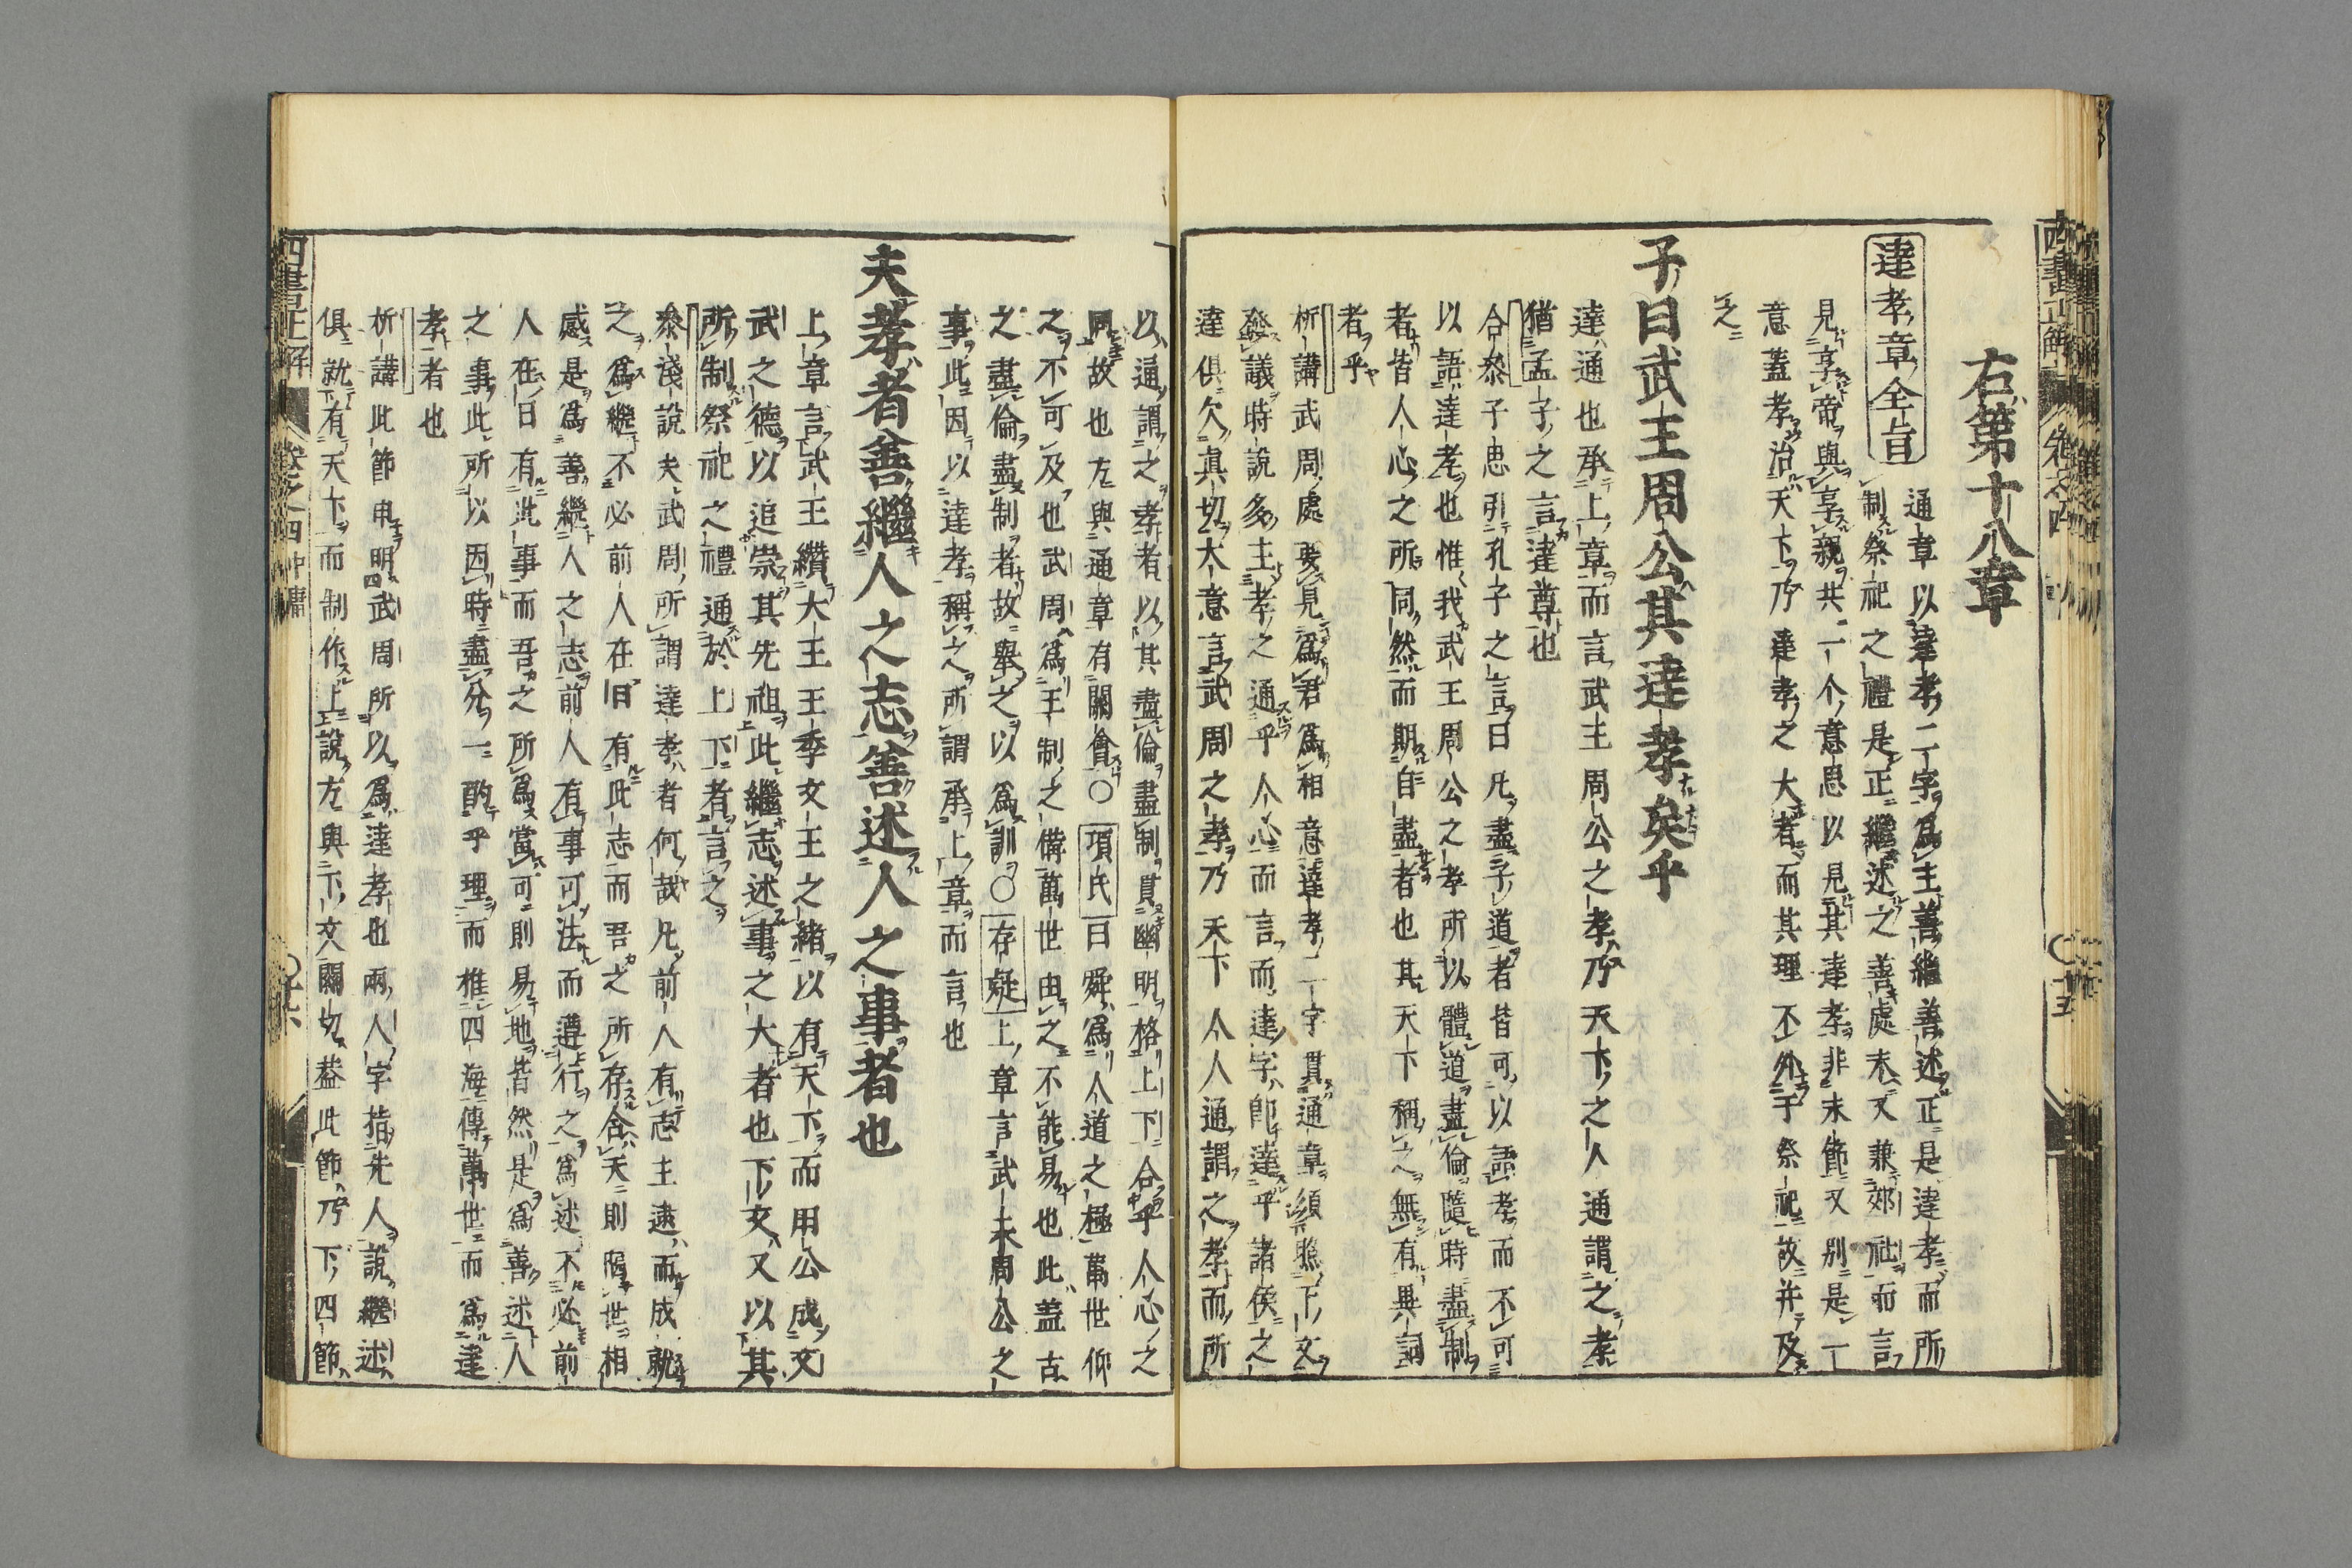 右第十八章
達孝章全旨
通章以達孝二字爲主善繼善述正是達孝而所
制祭祀之禮是正繼述之善處末又兼郊社而言
見享帝與享親共一个意思以見其達孝非末節又别是一
意蓋孝治天下乃達孝之大者而其理不外于祭祀故并及
之
子曰武王周公其達孝矣乎
達通也承上章而言武王周公之孝乃天下之人通謂之孝
猶孟子之言達尊也
合參子思引孔子之言曰凡盡子道者皆可以語孝而不可
以語達孝也惟我武王周公之孝所以體道盡倫隨時盡制
者皆人心之所同然而期自盡者也其天下稱之無有異詞
者乎
析講武周處要見爲君爲相意達孝二字貫通章須照下文
發議時說多主孝之通乎人心而言而達字卽達乎諸侯之
達俱欠眞切大意言武周之孝乃天下人人通謂之孝而所
以通謂之孝者以其盡倫盡制貫幽明格上下合乎人心之
同故也方與通章有關會○項氏曰舜爲人道之極萬世仰
之不可及也武周爲王制之備萬世由之不能易也此蓋古
之盡倫盡制者故舉之以爲訓○存疑上章言武末周公之
事此因以達孝稱之所謂承上章而言也
夫孝者善繼人之志善述人之事者也
上章言武王纘大王王季文王之緒以有天下而周公成文
武之德以追崇其先祖此繼志述事之大者也下文又以其
所制祭祀之禮通於上下者言之
參淺說夫武周所謂達孝者何哉凡前人有志主逮而成就
之爲繼不必前人在旧有此志而吾之所存合天則啚世相
感是爲善繼人之志前人有事可法而遵行之爲述不必前
人在日有此事而吾之所爲當可則易地皆然是爲善述人
之事此所以因時盡分一酌乎理而推四海傳萬世而爲達
孝者也
析講此節申明武周所以爲達孝也兩人字指先人說繼述
俱就有天下而制作上說方與下文關切葢此節乃下四節
四書正解
卷之四中庸
四書正解
卷之四